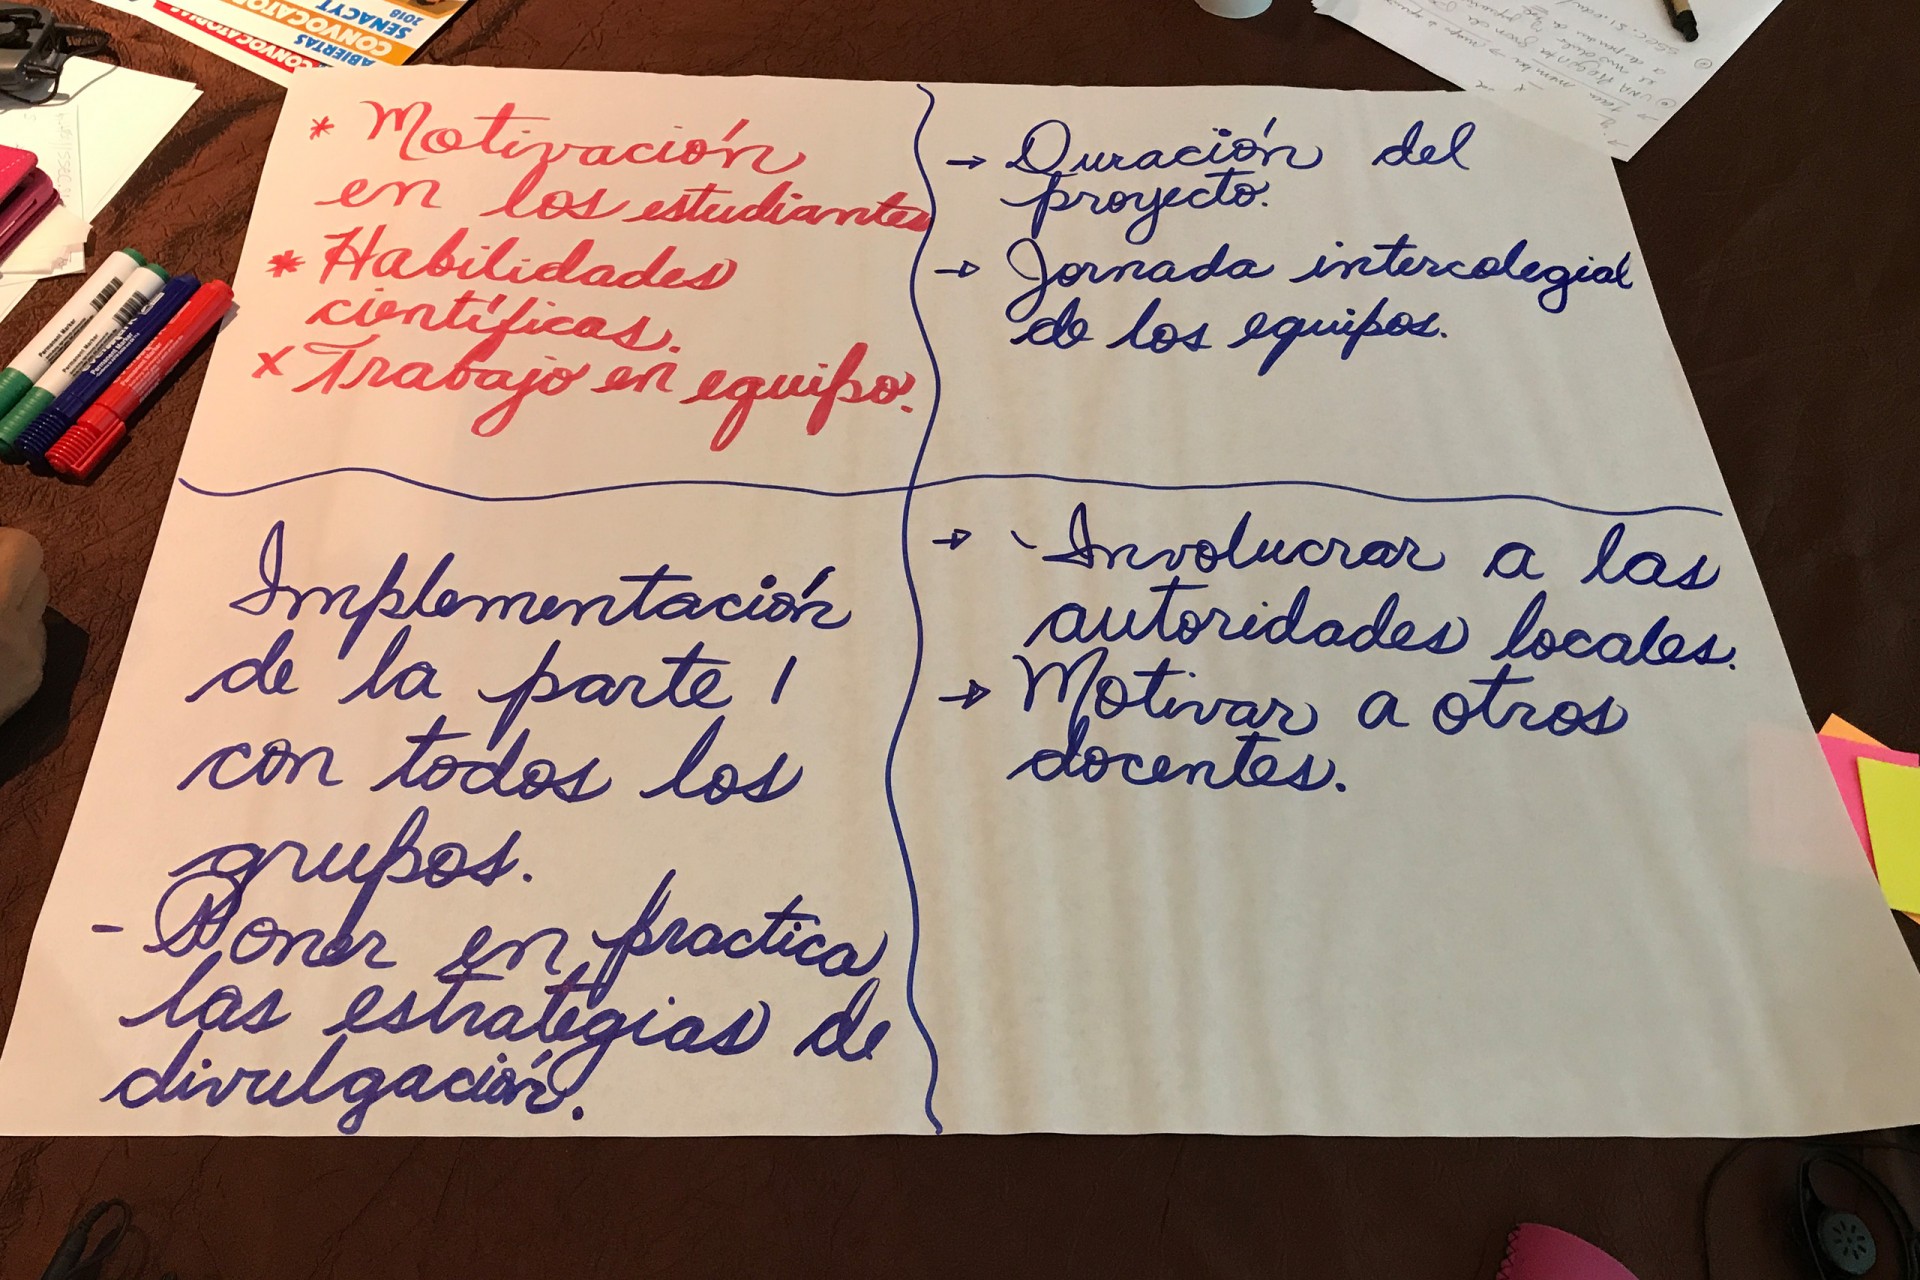 * Motivación
en los estudiantes
* Habilidades
científicas.
x Trabajo en equipo.
→ Duración del
proyecto.
→ Jornada intercolegial
de los equipos.
Implementación
de la parte 1
con todos los
grupos.
- Poner en practica
las estrategias de
divulgación.
→ - Involucrar a las
autoridades locales.
→ Motivar a otros
docentes.
ABIERTAS
CONVOCATOR
SENACYT
2018
CONVOCATO
Permanent Marker
Permanent Marker
Permanent Marker
Permanent Marker